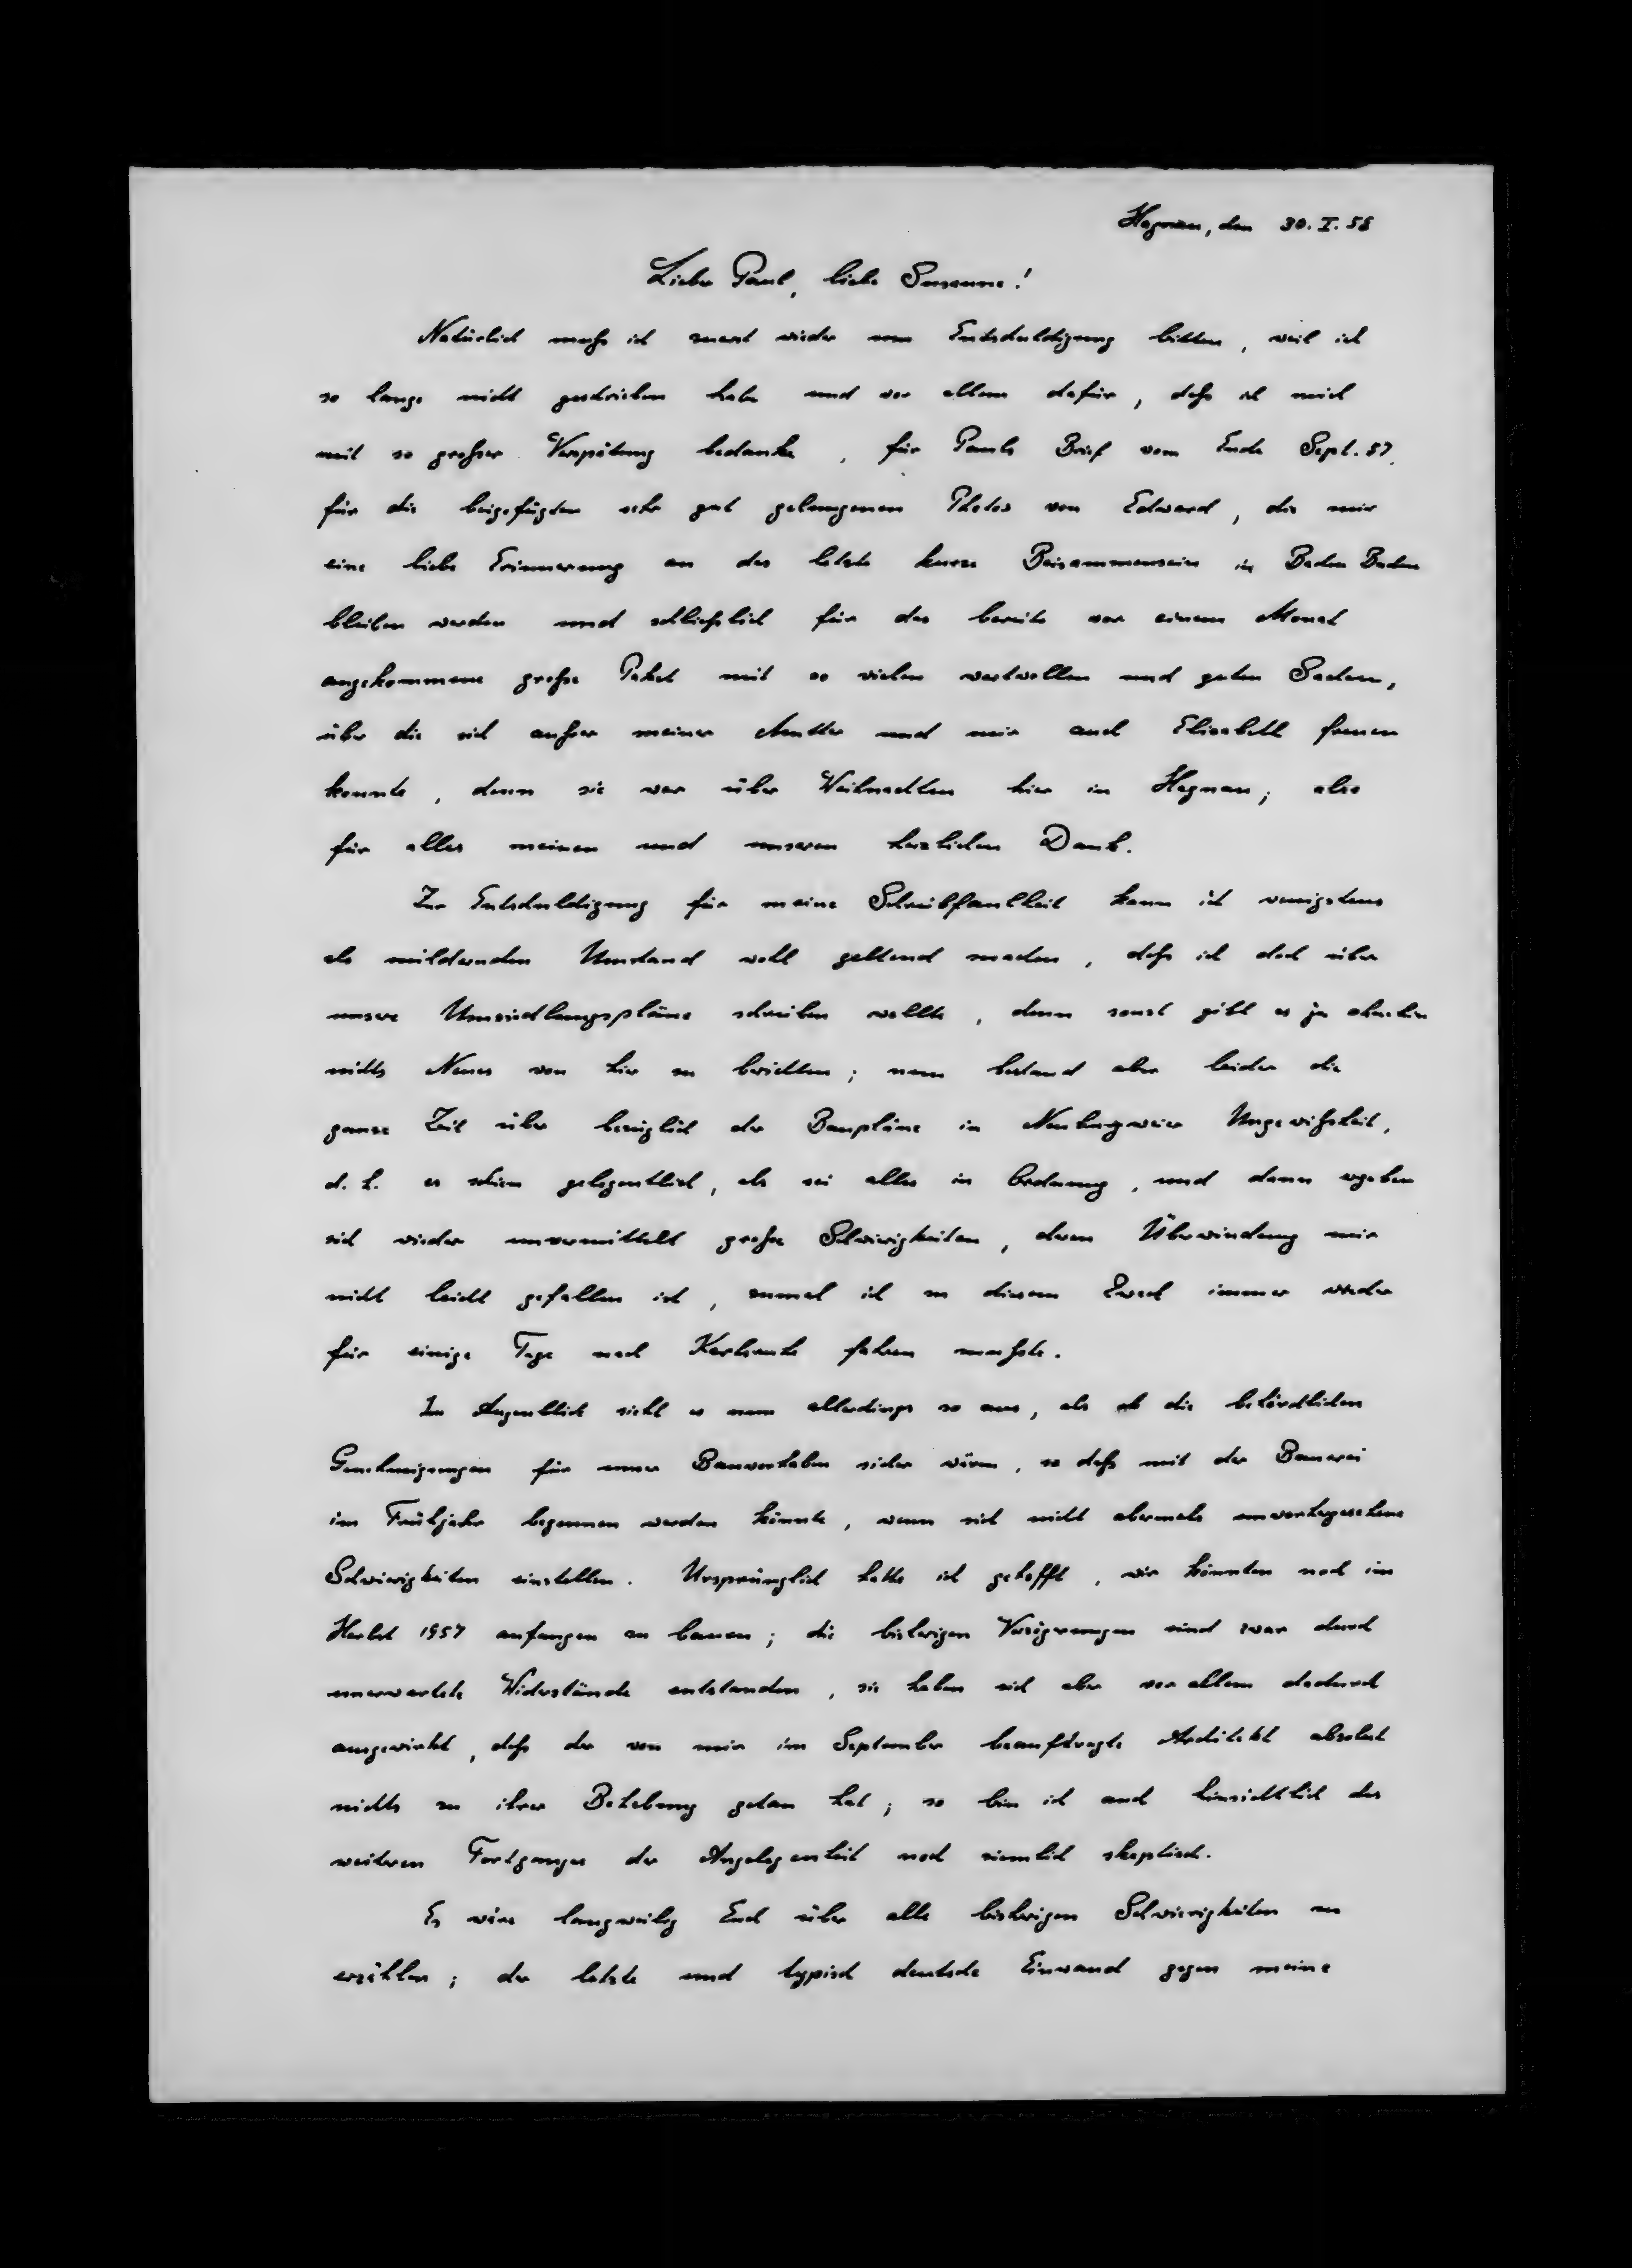 Hagnau, den 30. I. 58
Lieber Paul, liebe Susanne!
Natürlich muß ich zuerst wieder um Entschuldigung bitten, weil ich
so lange nicht geschrieben habe und vor allem dafür, daß ich mich
mit so großer Verspätung bedanke, für Pauls Brief vom Ende Sept. 57,
für die beigefügten sehr gut gelungenen Photos von Edward, die mir
eine liebe Erinnerung an das letzte kurze Beisammensein in Baden Baden
bleiben werden und schließlich für das bereits vor einem Monat
angekommene große Paket mit so vielen wertvollen und guten Sachen,
über die sich außer meiner Mutter und mir auch Elisabeth freuen
konnte, denn sie war über Weihnachten hier in Hagnau; also
für alles meinen und unseren herzlichen Dank.
Zur Entschuldigung für meine Schreibfaulheit kann ich wenigstens
als mildernden Umstand wohl geltend machen, daß ich doch über
unsere Umsiedlungspläne schreiben wollte, denn sonst gibt es ja ohnehin
nichts Neues von hier zu berichten; nun bestand aber leider die
ganze Zeit über bezüglich der Baupläne in Neuburgweier Ungewißheit,
d. h. es schien gelegentlich, als sei alles in Ordnung, und dann ergaben
sich wieder unvermittelt große Schwierigkeiten, deren Überwindung mir
nicht leicht gefallen ist, zumal ich zu diesem Zweck immer wieder
für einige Tage nach Karlsruhe fahren mußte.
Im Augenblick sieht es nun allerdings so aus, als ob die behördlichen
Genehmigungen für unser Bauvorhaben sicher wären, so daß mit der Bauerei
im Frühjahr begonnen werden könnte, wenn sich nicht abermals unvorhergesehene
Schwierigkeiten einstellen. Ursprünglich hatte ich gehofft, wir könnten noch im
Herbst 1957 anfangen zu bauen; die bisherigen Verzögerungen sind zwar durch
unerwartete Widerstände entstanden, sie haben sich aber vor allem dadurch
ausgewirkt, daß der von mir im September beauftragte Architekt absolut
nichts zu ihrer Behebung getan hat; so bin ich auch hinsichtlich des
weiteren Fortganges der Angelegenheit noch ziemlich skeptisch.
Es wäre langweilig Euch über alle bisherigen Schwierigkeiten zu
erzählen; der letzte und typisch deutsche Einwand gegen meine